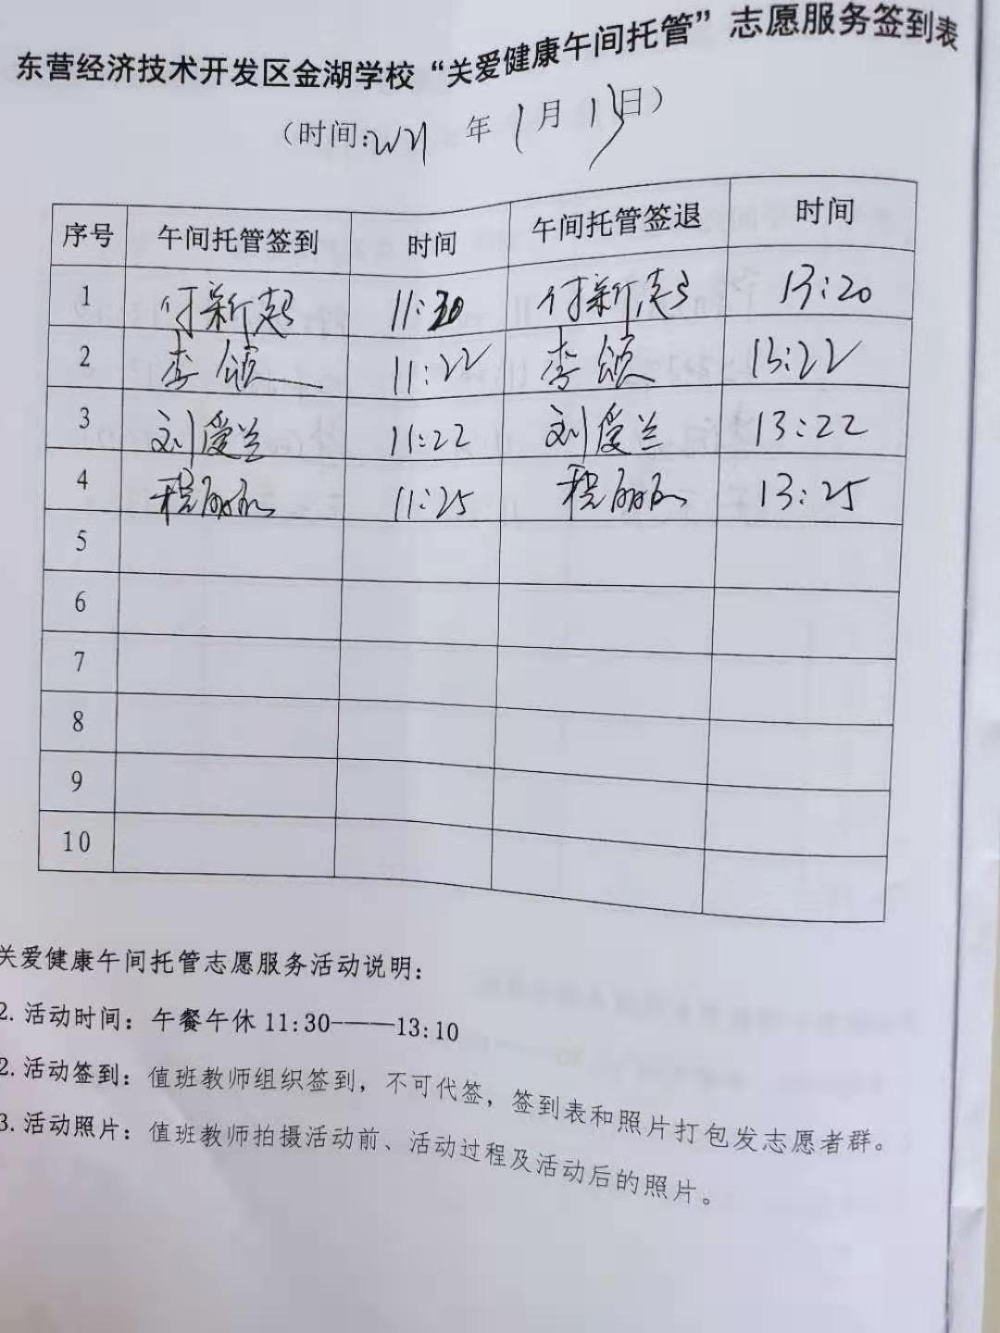 东营经济技术开发区金湖学校“关爱健康午间托管”志愿服务签到表
(时间:2021年1月15日)
序号 午间托管签到 时间 午间托管签退 时间
1 付新起 11:20 付新起 13:20
2 李颂 11:22 李颂 13:22
3 刘爱兰 11:22 刘爱兰 13:22
4 程丽丽 11:25 程丽丽 13:25
5
6
7
8
9
10
关爱健康午间托管志愿服务活动说明:
2.活动时间:午餐午休11:30——13:10
2.活动签到:值班教师组织签到,不可代签,签到表和照片打包发志愿者群。
3.活动照片:值班教师拍摄活动前、活动过程及活动后的照片。